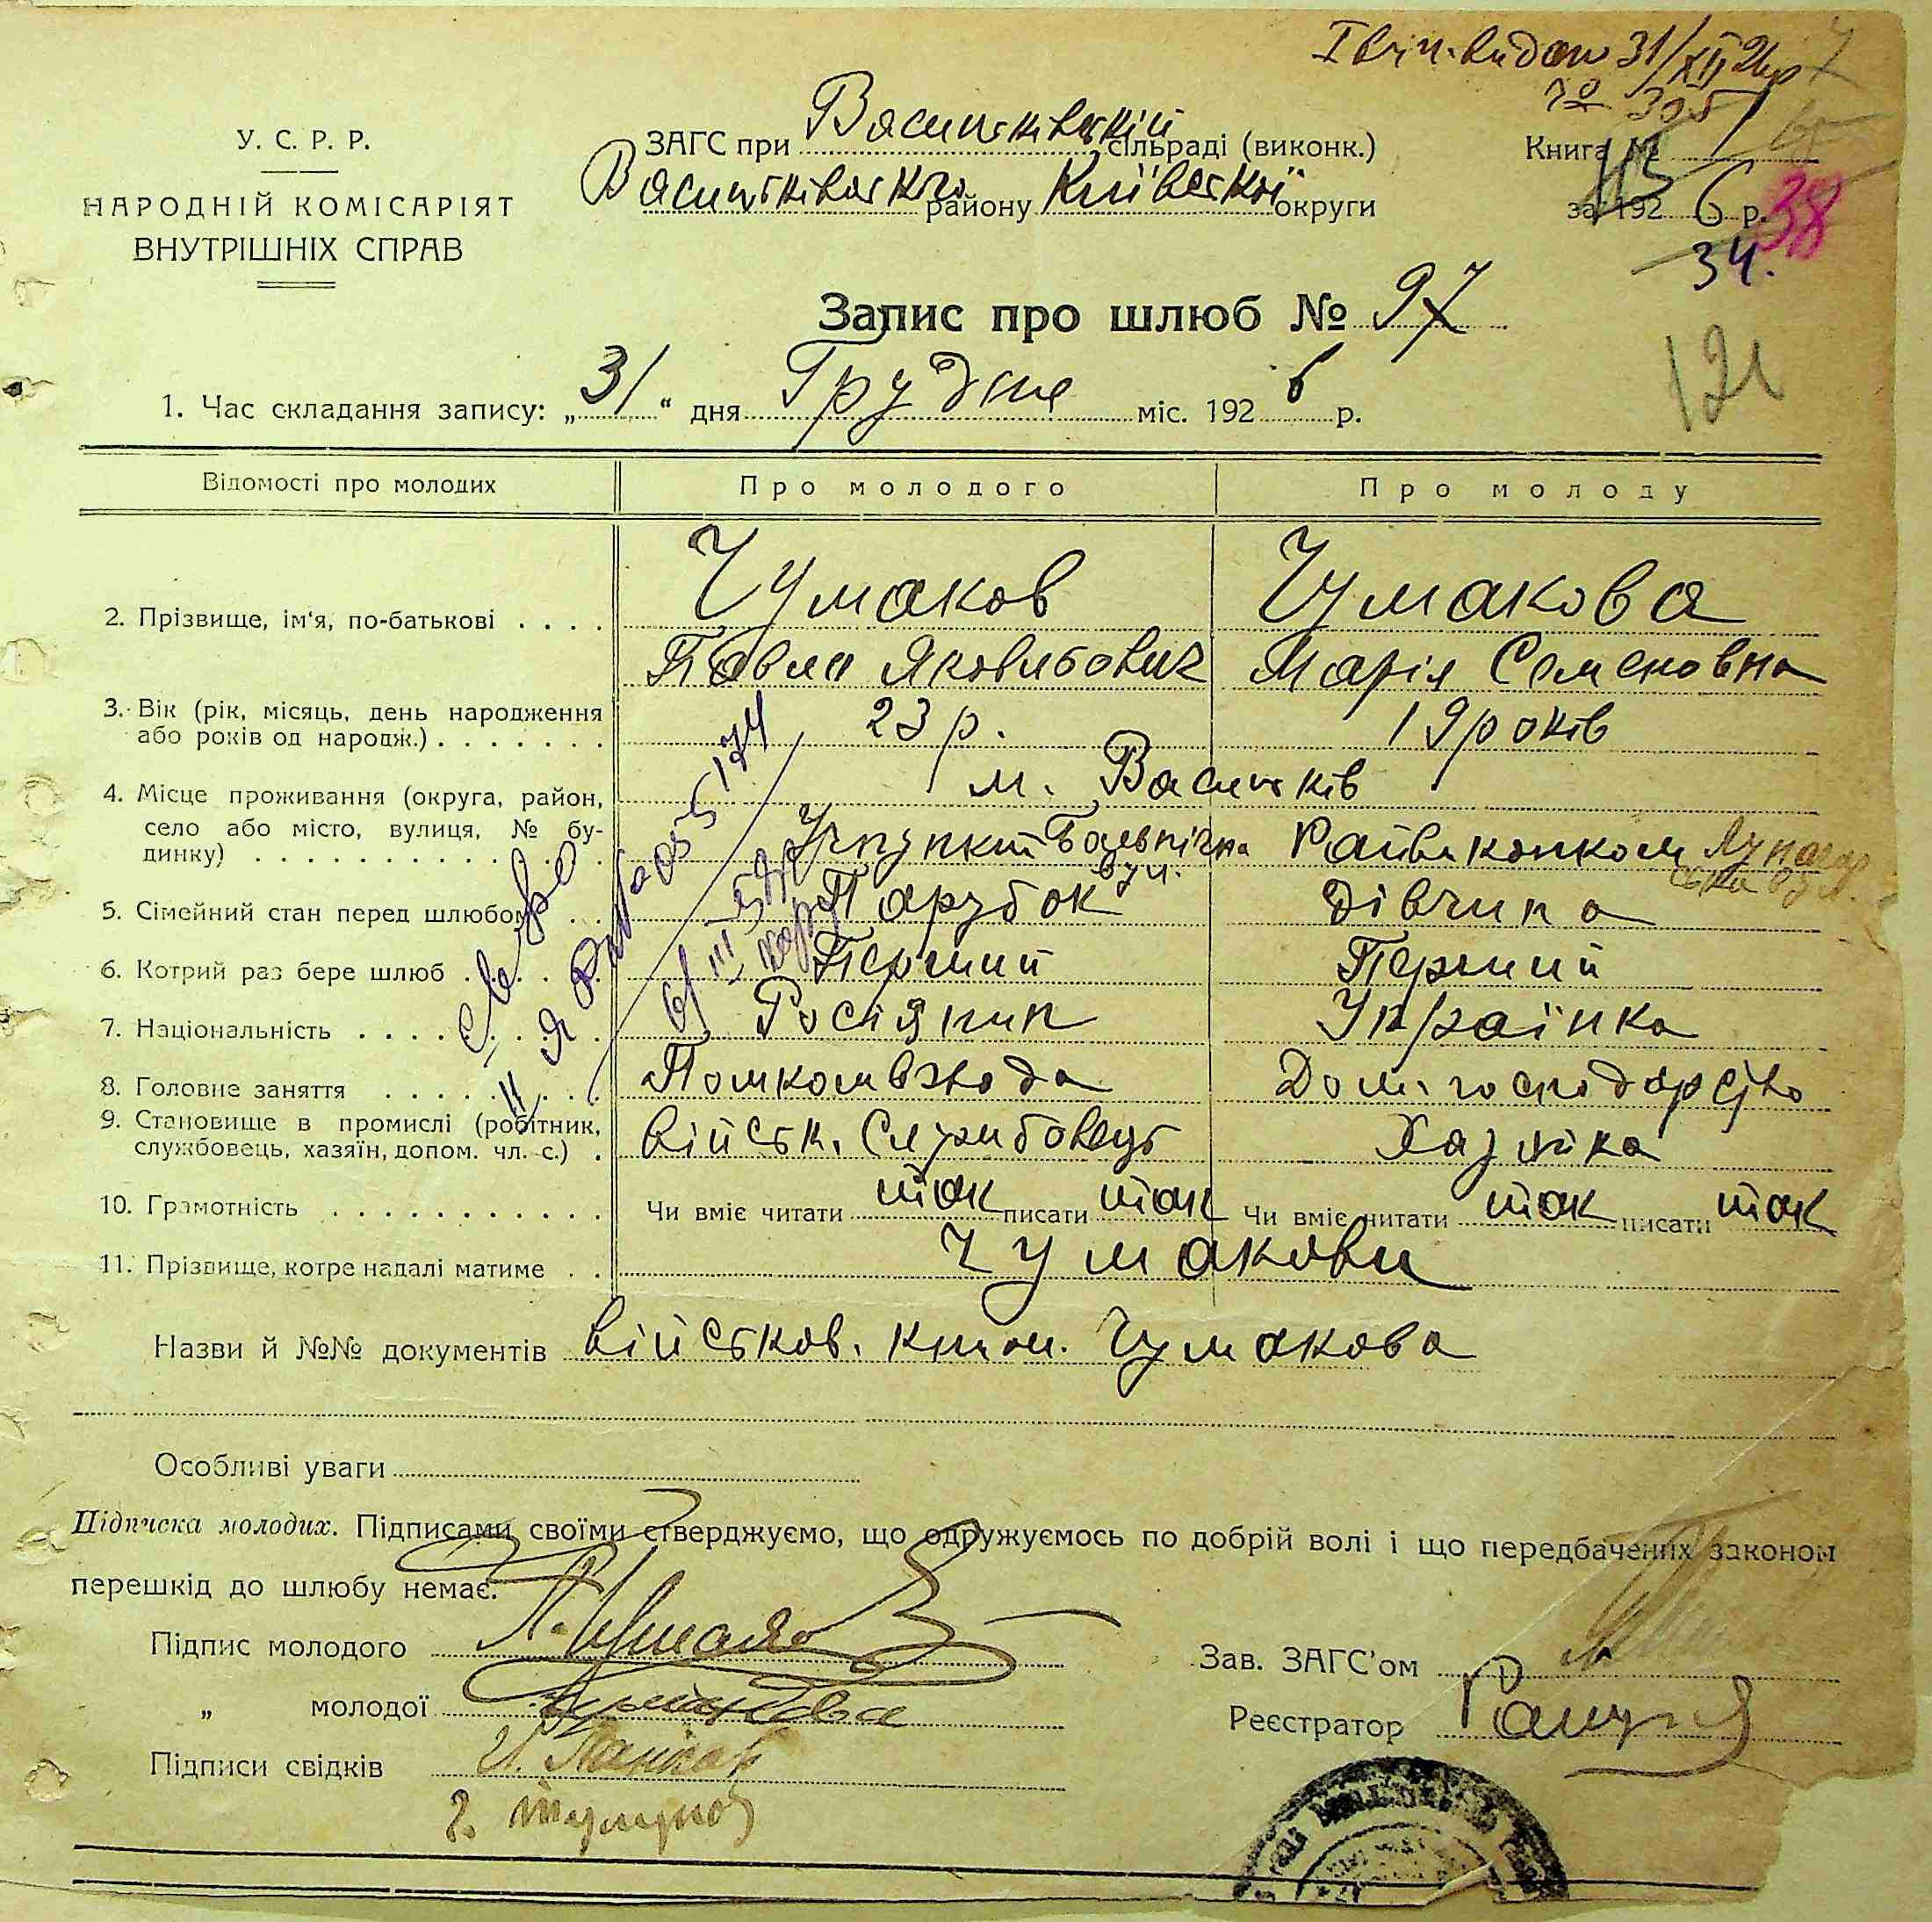 31/XII 26 р
У. С. Р. Р.
НАРОДНІЙ КОМІСАРІЯТ
ВНУТРІШНІХ СПРАВ
ЗАГС при Васильківській сільраді (виконк.)
Васильківськго району Київської округи
Книга № 1
за 192 6 р. 38
34.
Запис про шлюб № 97
121
1. Час складання запису: „ 31 “ дня Грудня міс. 192 6 р.
Відомості про молодих
Про молодого
Про молоду
2. Прізвище, ім'я, по-батькові . . . .
Чумаков
Павло Яковлєвич
Чумакова
Марія Семеновна
3. Вік (рік, місяць, день народження
або років од народж.) . . . . . . .
23 р.
19 років
4. Місце проживання (округа, район,
село або місто, вулиця, № бу-
динку) . . . . . . . . . . . . .
м. Васильків
вул.
Райвиконком
5. Сімейний стан перед шлюбом . .
Парубок
Дівчина
6. Котрий раз бере шлюб . . . . .
Перший
Перший
7. Національність . . . . . . . .
Росіянин
Українка
8. Головне заняття . . . . . . . .
Помкомвзвода
Дом. господарство
9. Становище в промислі (робітник,
службовець, хазяїн, допом. чл. с.) .
Військ. Службовець
Хазяйка
10. Грамотність . . . . . . . . . . . .
Чи вміє читати так писати так
Чи вміє читати так писати так
11. Прізвище, котре надалі матиме . .
Чумакови
Назви й №№ документів Військов. книж. Чумакова
Особливі уваги
Підписка молодих. Підписами своїми стверджуємо, що одружуємось по добрій волі і що передбачених законом
перешкід до шлюбу немає.
Підпис молодого П. Чумаков
„ молодої Чумакова
Підписи свідків
Зав. ЗАГС'ом
Реєстратор